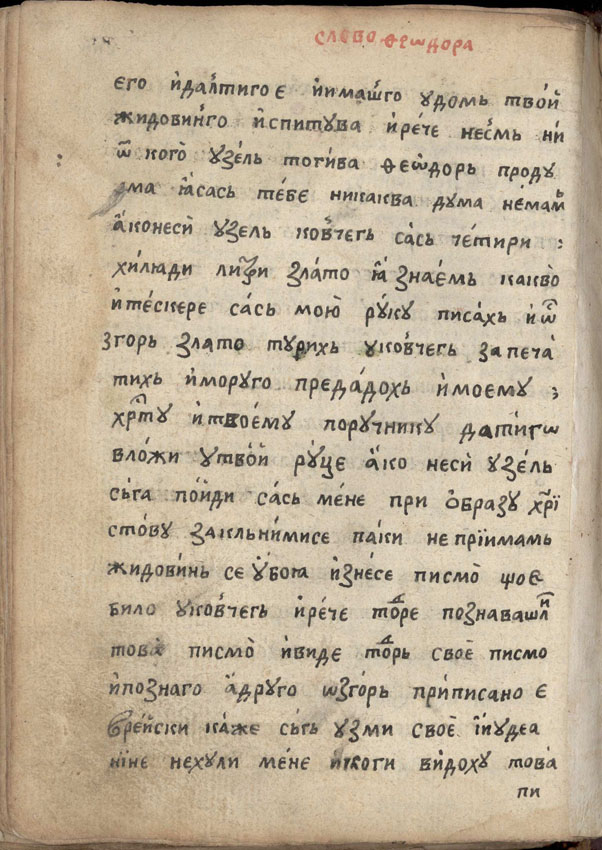 слово ѳеѡдора
его и҆дал̾тиго є и҆има́шго удомь тво́й
жидови́нго и҆спитува и҆ре́че не́смь ни́
ѿ кого̀ узе́ль тоги́ва ѳеѡ́дорь проду
ма ꙗ҆сась те́бе никаква дума не́мамь
а҆конеси̑ узель ковчегь са́сь че́тири :
хи́люди ли́три злато ꙗ҆ знае́мь какво̀
и҆те́скере сась мою̀ ру́ку писа́хь и҆ѿ
згорь злато турихь уковчегь запеча́
тихь и҆моруго преда́дохь и҆моему
хрⷭ҇ту и҆твое́му поручнику дати́гѡ
вложи утво́й ру́це а҆ко неси̑ узе́ль
сьга по́йди са́сь ме́не при ѻбразу хрїⷭ҇
стову закльни́мисе па́ки не прїи́мамь
жидови́нь се ѹ҆боꙗ и҆зне́се писмо̀ що є
било уковчегь и҆ре́че то́дⷣре познавашли
това̀ писмо̀ и҆виде то́дⷣрь своѐ писмо
и҆позна́го а҆друго ѡзго́рь при́писано є
врейски ка́же сьгь узми своѐ і҆иудеа
нїне нехули ме́не и҆коги ви́дохꙋ това̀
пи